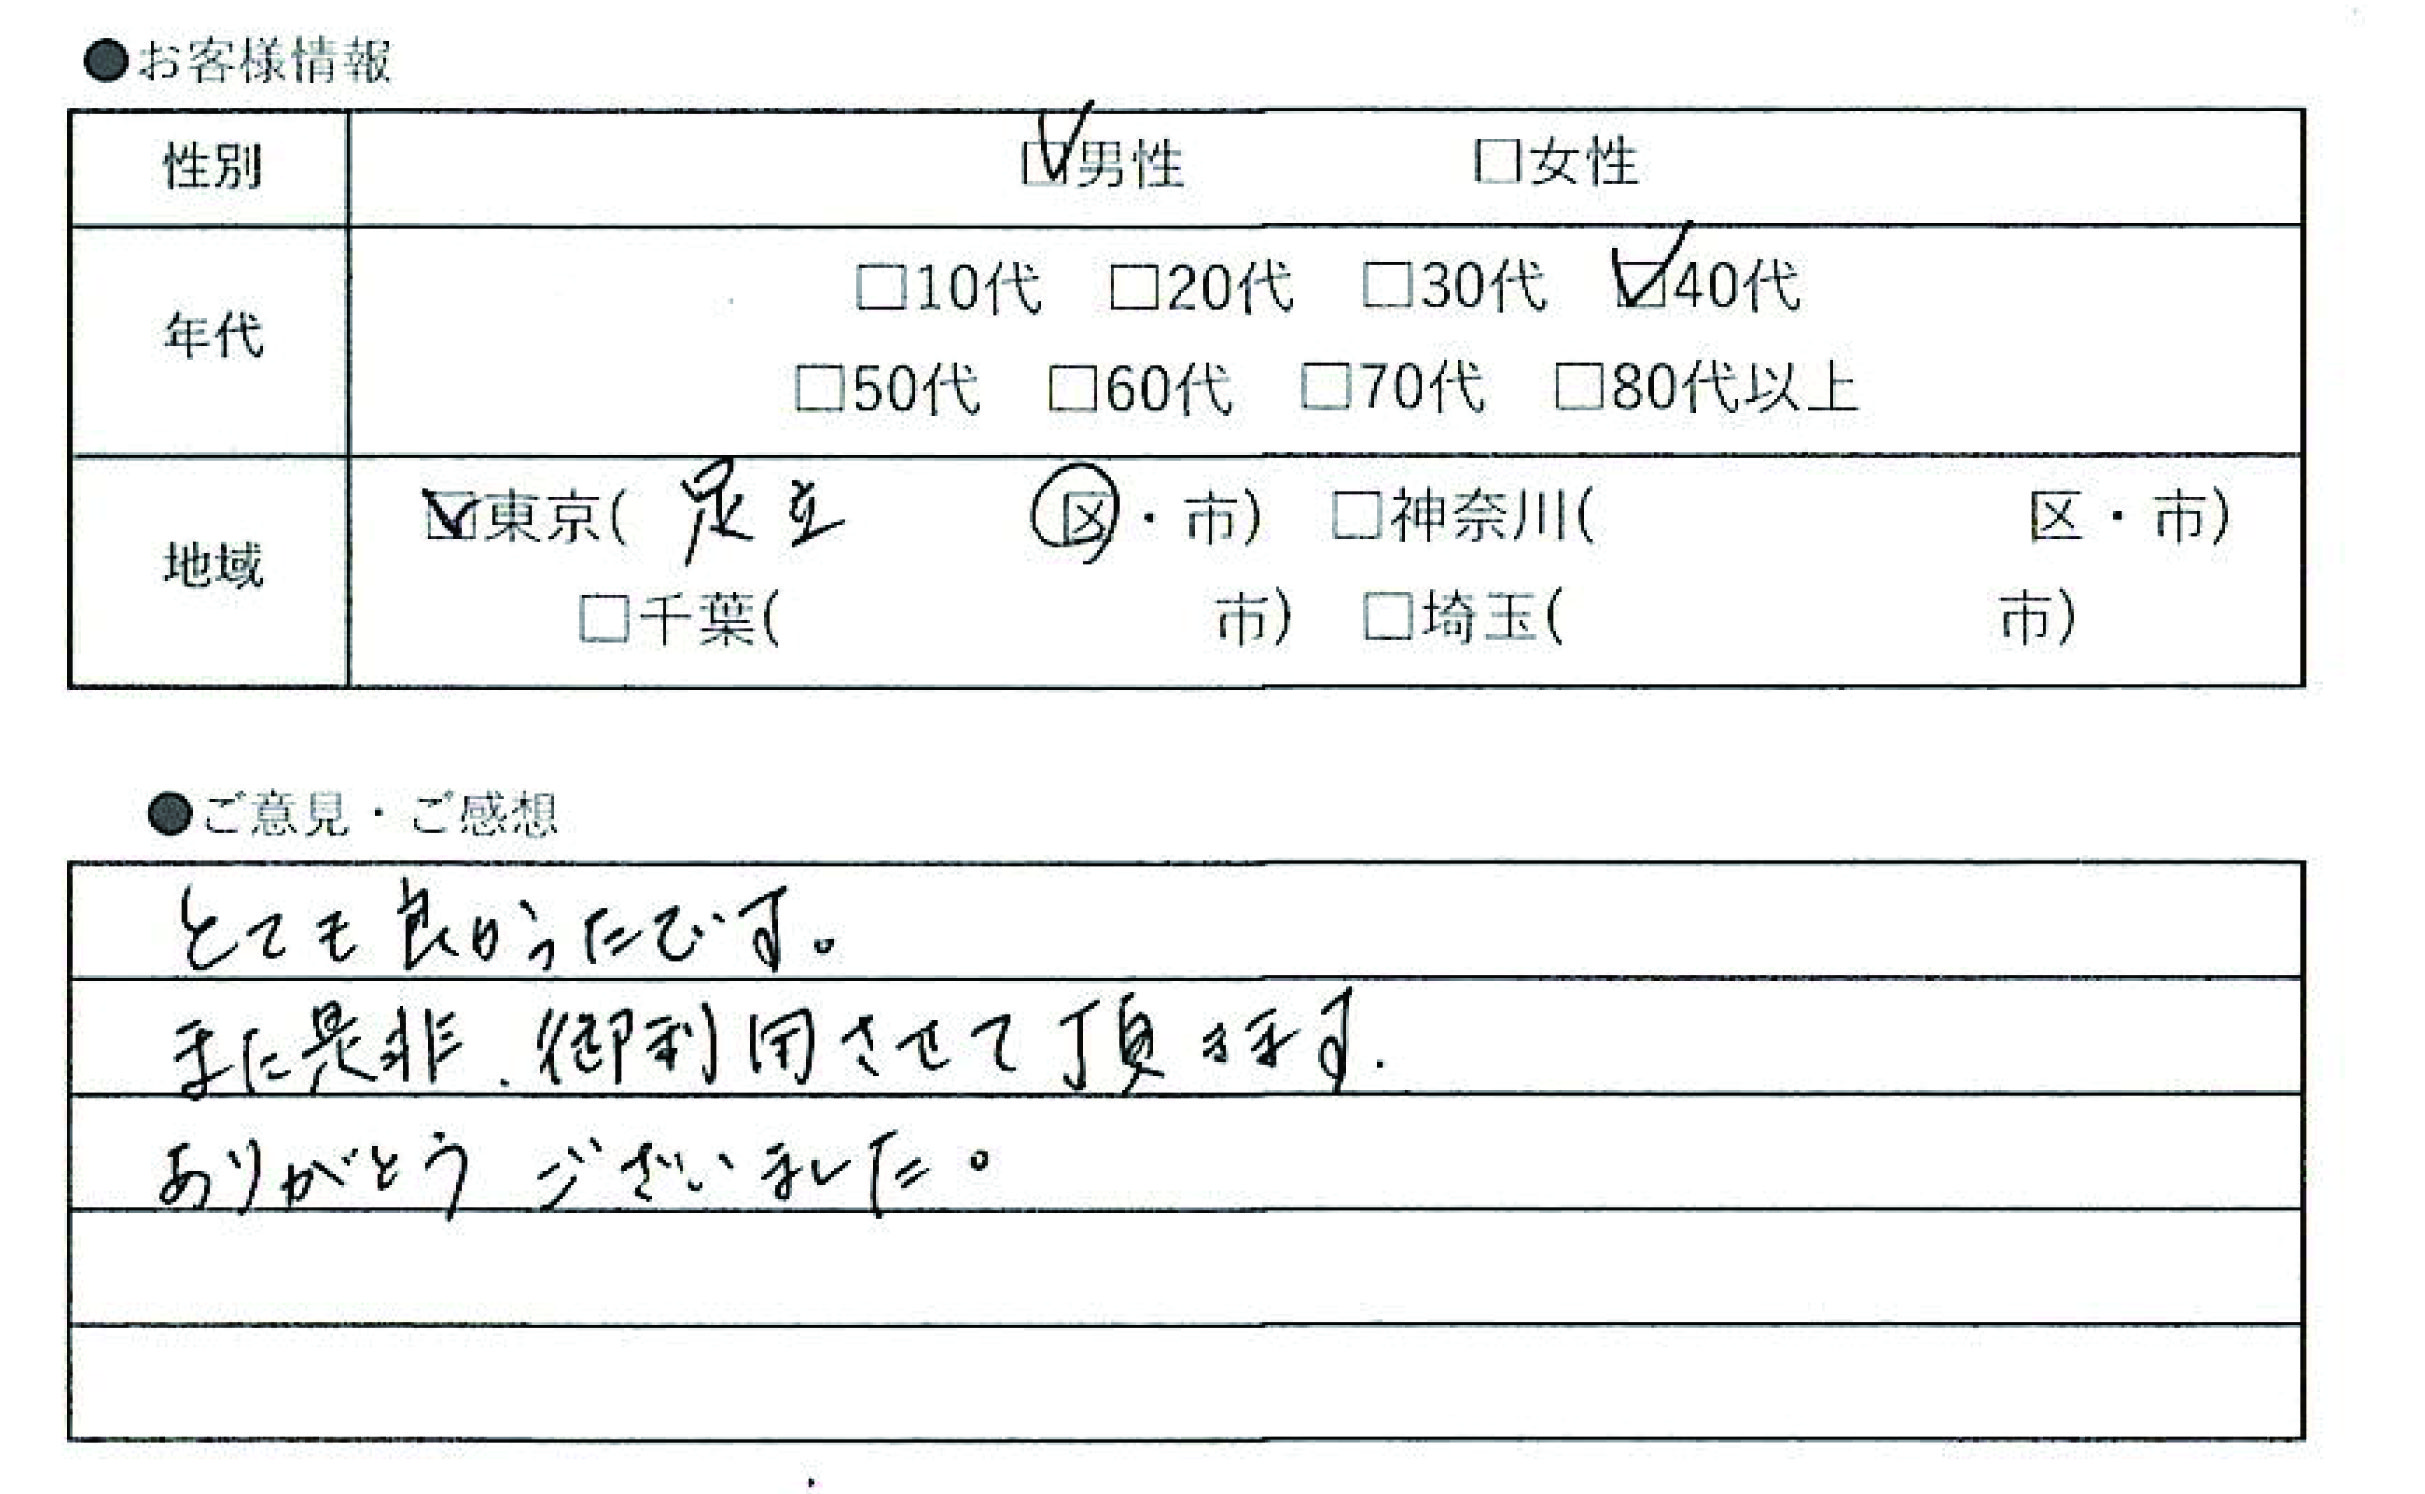 ●お客様情報
性別 ☑男性 □女性
年代 □10代 □20代 □30代 ☑40代
□50代 □60代 □70代 □80代以上
地域 ☑東京( 足立 区・市) □神奈川( 区・市)
□千葉( 市) □埼玉( 市)
●ご意見・ご感想
とても良かったです。
また是非、御利用させて頂きます.
ありがとうございました。